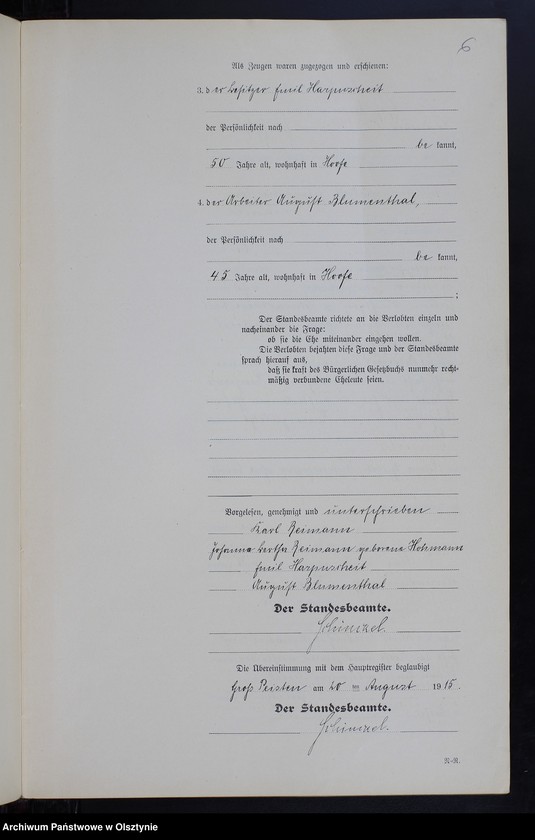 6
Als Zeugen waren zugezogen und erschienen:
3. der Besitzer Emil Harpurscheit
der Persönlichkeit nach
be kannt,
50 Jahre alt, wohnhaft in Hoofe
4. der Arbeiter August Blumenthal,
der Persönlichkeit nach
be kannt,
45 Jahre alt, wohnhaft in Hoofe
;
Der Standesbeamte richtete an die Verlobten einzeln und
nacheinander die Frage:
ob sie die Ehe miteinander eingehen wollen.
Die Verlobten bejahten diese Frage und der Standesbeamte
sprach hierauf aus,
daß sie kraft des Bürgerlichen Gesetzbuchs nunmehr recht-
mäßig verbundene Eheleute seien.
Vorgelesen, genehmigt und unterschrieben
Karl Reimann
Johanna Bertha Reimann geborene Hohmann
Emil Harpurscheit
August Blumenthal
Der Standesbeamte.
Schinzel.
Die Übereinstimmung mit dem Hauptregister beglaubigt
Groß Peisten am 20 ten August 1915.
Der Standesbeamte.
Schinzel.
R-R.
Archiwum Państwowe w Olsztynie